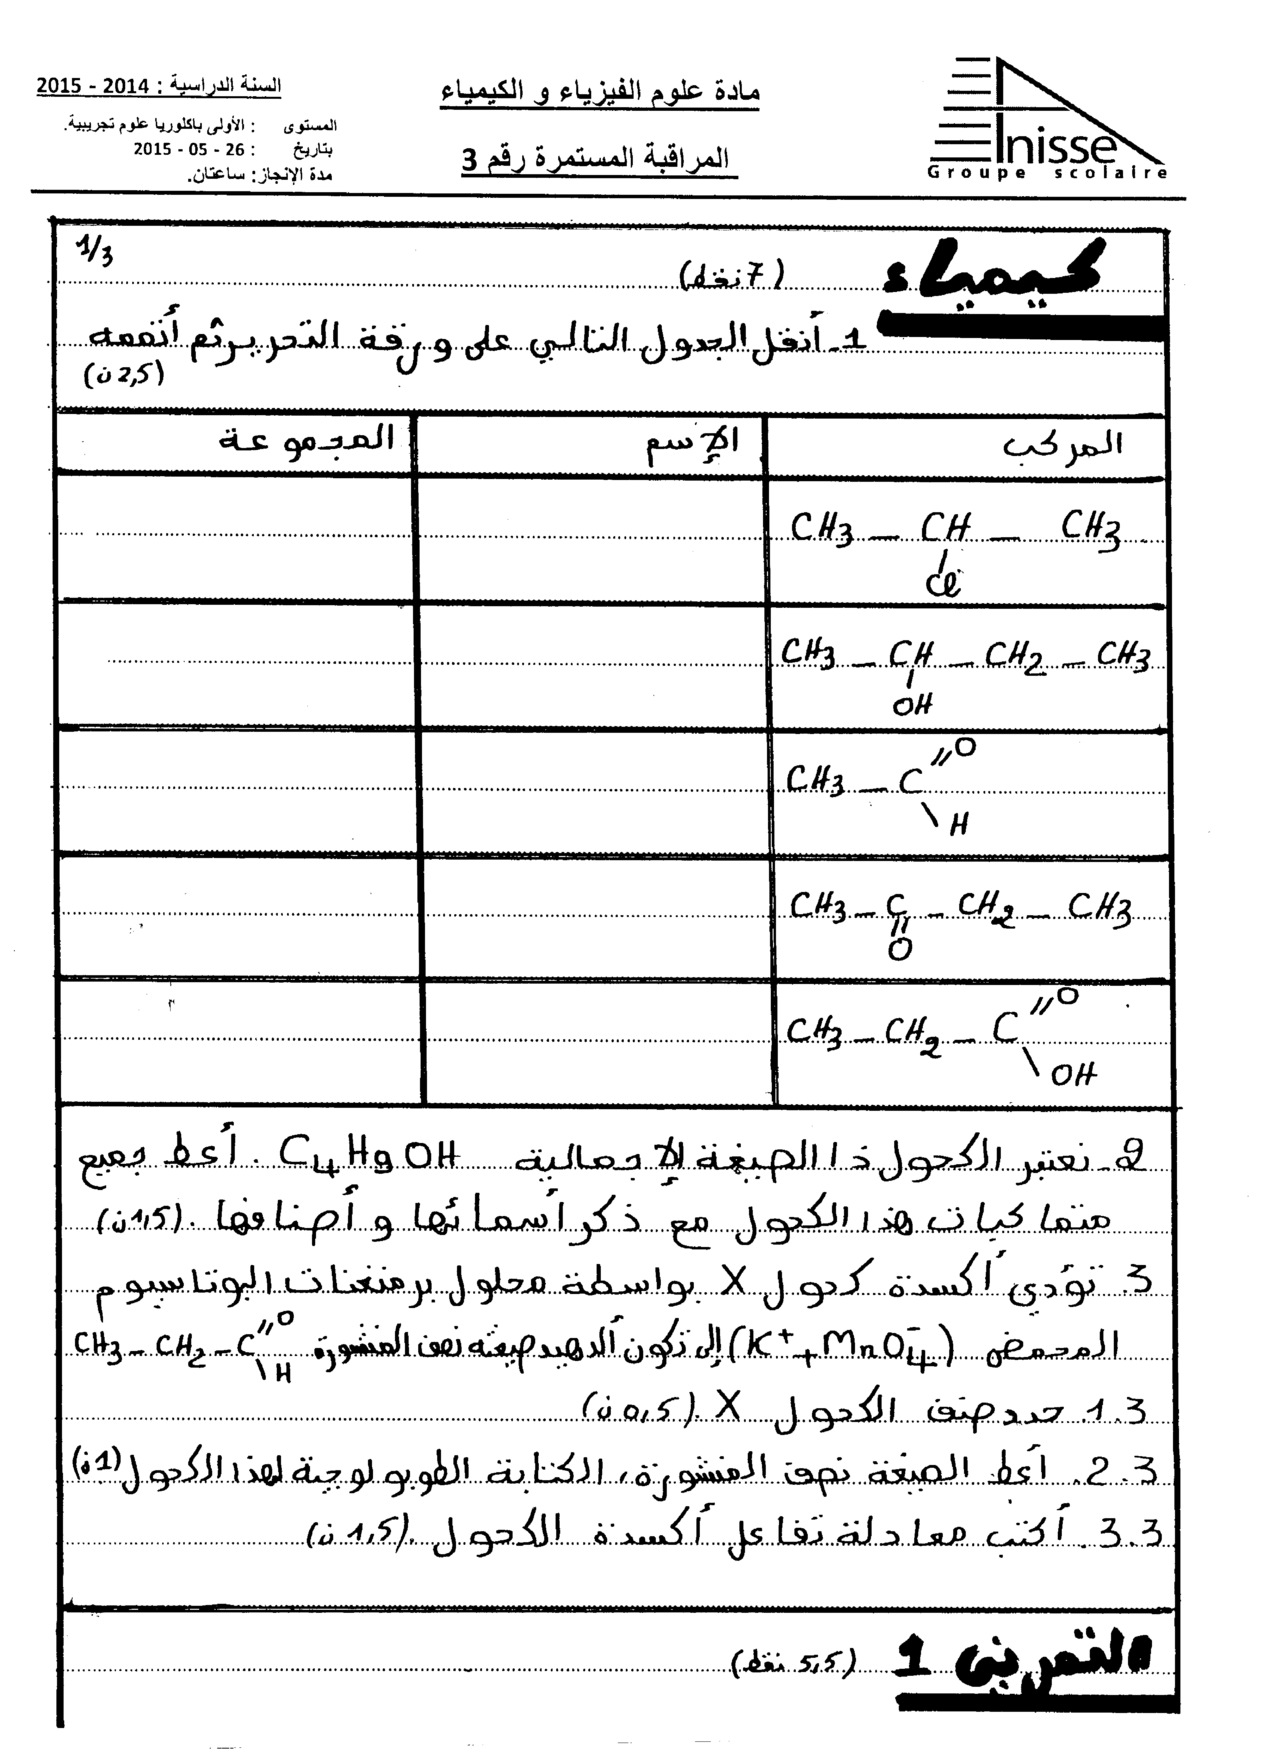 السنة الدراسية : 2014 - 2015
المستوى : الأولى باكلوريا علوم تجريبية.
بتاريخ : 26 - 05 - 2015
مدة الإنجاز: ساعتان.
مادة علوم الفيزياء و الكيمياء
المراقبة المستمرة رقم 3
Anisse
Groupe scolaire
1/3
كيمياء (7 نقط)
1- أنقل الجدول التالي على ورقة التحرير ثم أتممه
(2,5 ن)
المركب الإسم المجموعة
CH3 — CH — CH3
Cl
CH3 — CH — CH2 — CH3
OH
CH3 — C
O
H
CH3 — C — CH2 — CH3
O
CH3 — CH2 — C
O
OH
2- نعتبر الكحول ذا الصيغة الإجمالية C4H9OH . أعط جميع
متماكبات هذا الكحول مع ذكر أسمائها و أصنافها . (1,5 ن)
3. تؤدي أكسدة كحول X بواسطة محلول برمنغنات البوتاسيوم
المحمض (K+ + MnO4-) إلى تكون ألدهيد صيغته نصف المنشورة CH3 — CH2 — C
O
H
1.3. حدد صنف الكحول X. (0,5 ن)
2.3. أعط الصيغة نصف المنشورة، الكتابة الطوبولوجية لهذا الكحول (1 ن)
3.3. أكتب معادلة تفاعل أكسدة الكحول . (1,5 ن)
التمرين 1 (5,5 نقط)